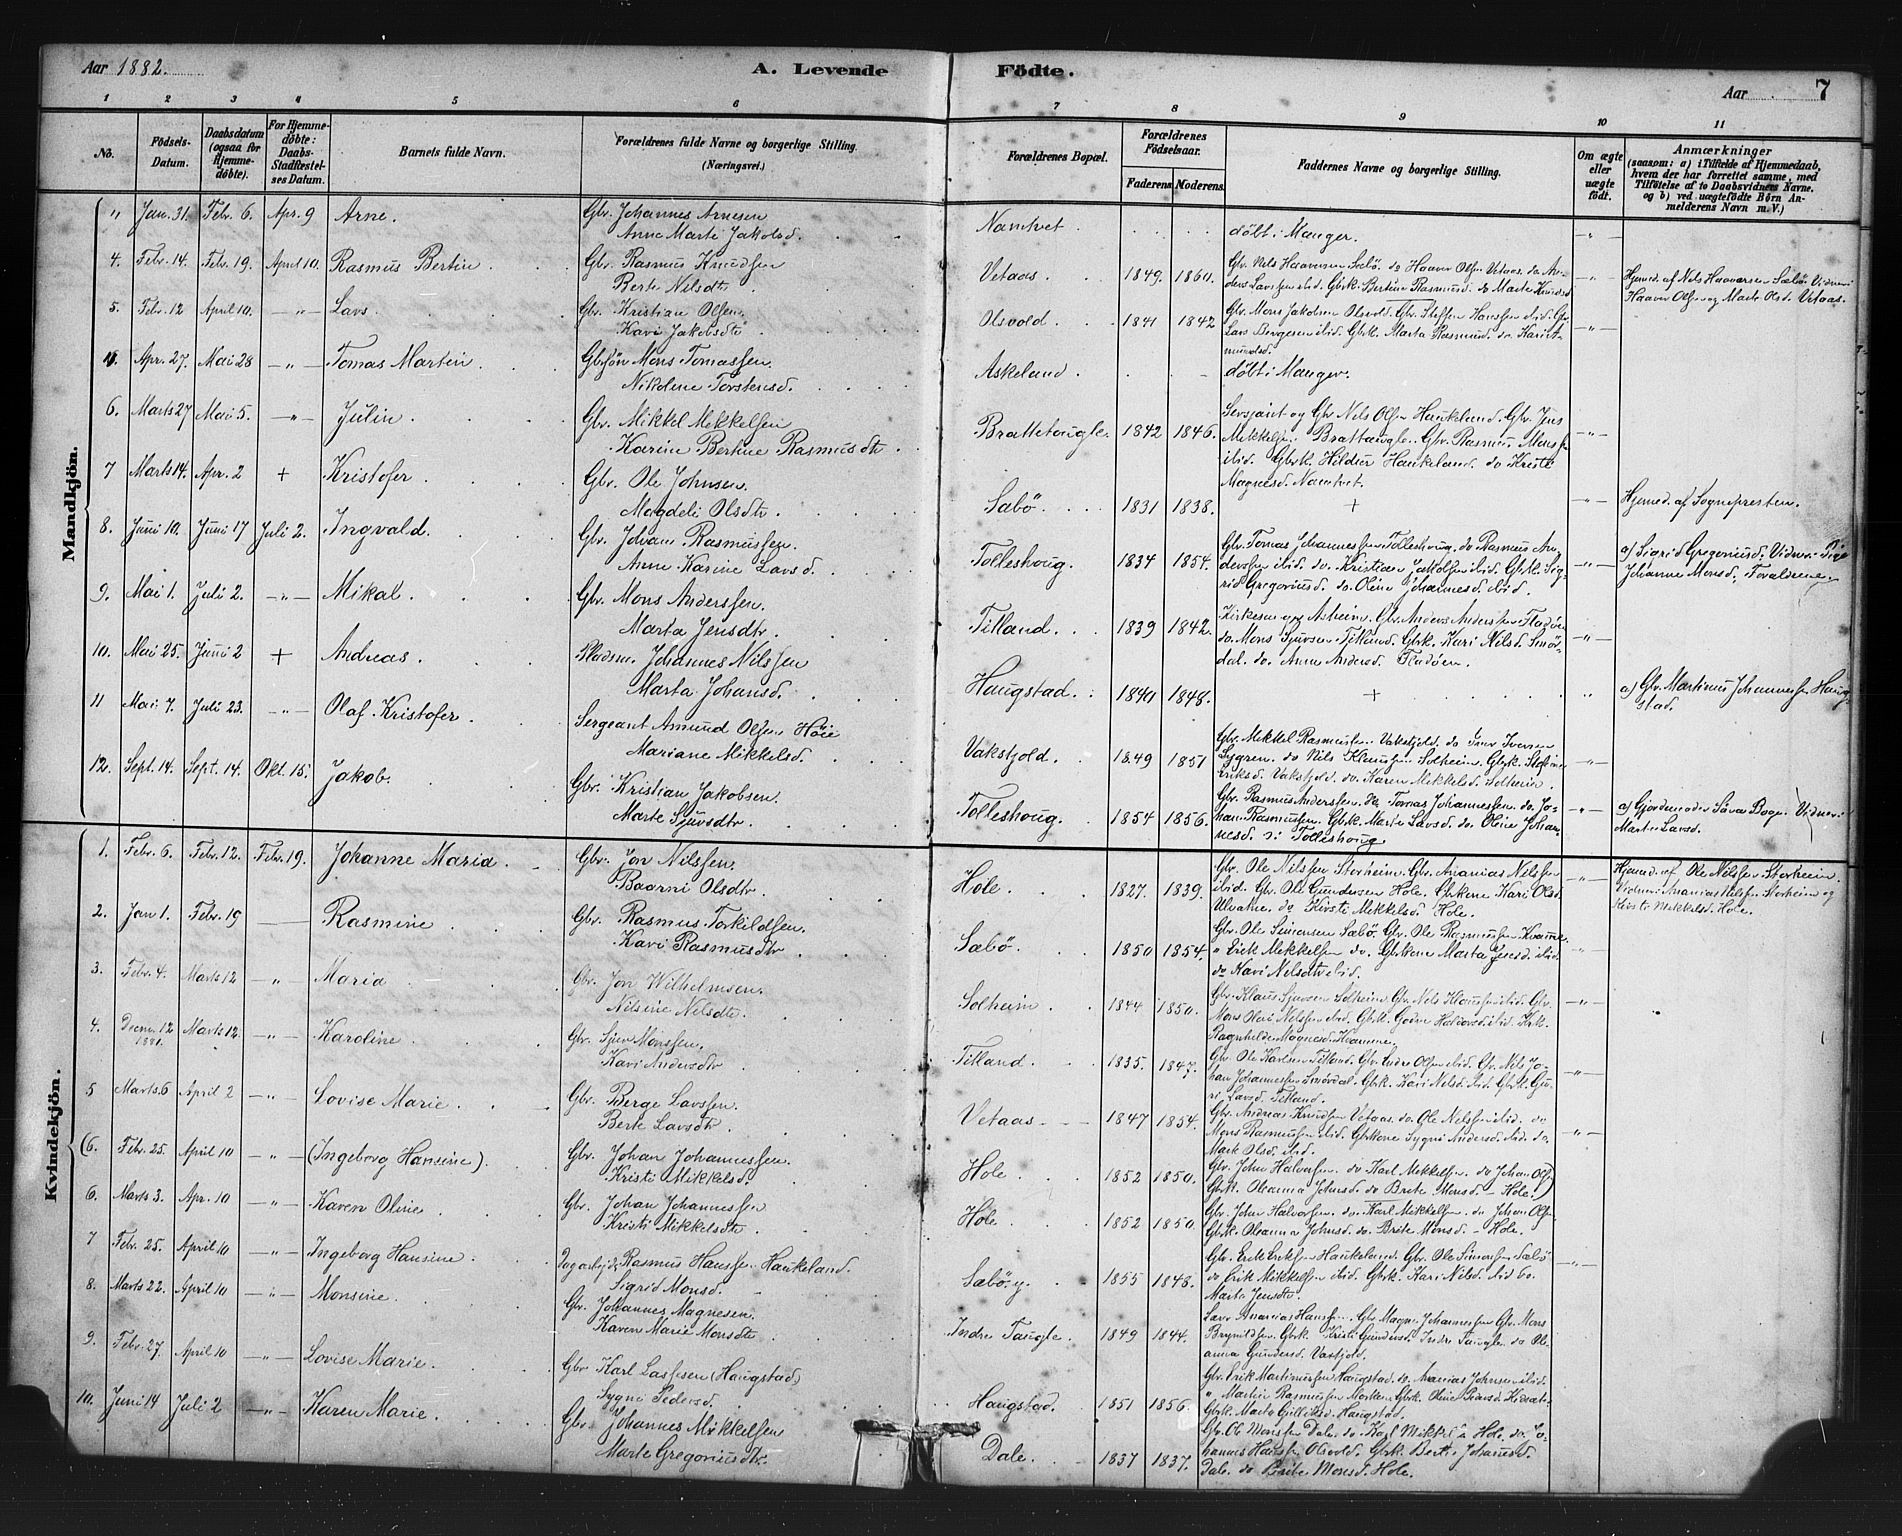 Aar 1882.
A. Levende Födte.
Aar 7
1 2 3 4 5 6 7 8 9 10 11
No.
Födsels-Datum.
Daabsdatum (ogsaa for Hjemmedöbte).
For Hjemmedöbte: Daabs-Stadfæstelses Datum.
Barnets fulde Navn.
Forældrenes fulde Navne og borgerlige Stilling. (Næringsvei.)
Forældrenes Bopæl.
Forældrenes Födselsaar.
Faderens. Moderens.
Faddernes Navne og borgerlige Stilling.
Om ægte eller uægte födt.
Anmærkninger
(saasom: a) i Tilfælde af Hjemmedaab, hvem der har forrettet samme, med Tilföielse af to Daabsvidners Navne. og b) ved uægtefödte Börn Anmelderens Navn m. V.)
Mandkjön.
" Jan. 31. Febr. 6. Apr. 9 Arne. Gbr. Johannes Arnesen
Anne Marte Jakobsd. Namtvet. döbt i Manger. — " —
4. Febr. 14. Febr. 19. April 10. Rasmus Bertin. Gbr. Rasmus Knudsen
Berte Nilsdtr. Vetaas. 1849. 1860. Gbr. Nels Haaversen Sæbö. do Haaver Olsen Vetaas. do An-
ders Lavssen ibid. Gbrk. Bertine Rasmusd. do Marte Knudsd — " — Hjemd. af Nels Haaversen Sæbö. Vidner:
Haaver Olsen og Marte Olsd. Vetaas.
5. Febr. 12 April 10. — " — Lavs. Gbr. Kristian Olsen.
Kari Jakobsdtr Olsvold. 1841 1842 Gbr. Mons Jakobsen Olsvold. Gbr. Steffen Hanssen ibid. Gbr.
Lars Bergesen ibid. Gbrk. Marta Rasmusd. do Kari A-
mundsd. — " —
Apr. 27. Mai 28 — " — Tomas Martin. Gbrsön Mons Tomassen.
Nikoline Torstensd. Askeland. döbt i Manger.
6. Marts 27 Mai 5. — " — Julin. Gbr. Mikkel Mekkelsen
Karine Bertine Rasmusdtr. Brattetougle. 1842 1846. Sersjant og Gbr. Nils Olsen Haukeland. Gbr. Jens
Mikkelsen Brattetougle. Gbr. Rasmus Monss.
ibid. Gbrk. Hildur Haukeland. do Kriste
Magnesd. Namtvet. — " —
7 Marts 14. Apr. 2 + Kristofer. Gbr. Ole Johnsen.
Magdeli Olsdtr. Sæbö. 1831 1838. + — " — Hjemd. af Sognepresten.
8. Juni 10. Juni 17 Juli 2. Ingvald. Gbr. Johans Rasmussen.
Anne Karine Lavsd. Tolleshoug. 1834 1854. Gbr. Tomas Johannessen Tolleshoug. do Rasmus An-
derssen ibid. do. Kristian Jakobsen ibid. Gbrk. Sig-
rid Gregoriusd. do. Oline Johannesd. ibid. — " — a) Sigrid Gregoriusd. Vidner: Pige
Johanne Monsd. Forældrene.
9. Mai 1. Juli 2. — " — Mikal. Gbr. Mons Anderssen.
Marta Jensdtr. Titland. 1839 1842. Kirkesanger Asheim. Gbr. Anders Anderssen Fladöen
do. Mons Sjursen Titland. Gbrk. Kari Nilsd. Smör-
dal. do. Anna Andersd. Fladöen. — " —
10. Mai 25. Juni 2 + Andreas. Pladsm. Johannes Nilssen
Marta Johansd. Haugstad. 1840 1848. + " a) Gbr. Martinus Johannessen Haug-
stad.
11 Mai 7. Juli 23. — " — Olaf Kristofer. Sergeant Amund Olsen Höie
Mariane Mikkelsd. Vakstjold. 1849 1851 Gbr. Mekkel Rasmussen Vakstjold. do Iver Iversen
Sygren. do Nils Klaussen Solheim. Gbrk. Stefine
Eriksd. Vakstjold. do. Karen Mekkelsd. Solheim. — " —
12. Sept. 14. Sept. 14. Okt. 15. Jakob. Gbr. Kristian Jakobsen.
Marte Sjursdtr. Tolleshoug. 1854 1856. Gbr. Rasmus Anderssen. do Tomas Johannessen. do. Jo-
han Rasmussen. Gbrk. Marte Lavsd. do. Oline Johan-
nesd. Tolleshoug. — " — a) Gjordemoder Vidner:
Marte Lavsd.
Kvindekjön.
1. Febr. 6. Febr. 12. Febr. 19. Johanne Maria. Gbr. Jon Nilssen.
Baarni Olsdtr. Hole. 1827. 1839. Gbr. Ole Nilssen Storheim. Gbr. Ananias Nilssen
ibid. Gbr. Ole Gundersen Hole. Gbrkone Kari Olsd.
Ulvatne. do Kirsti Mekkelsd. Hole. — " — Hjemd. af Ole Nilssen Storheim.
Vidner: Ananias Nilssen Storheim og
Kirsti Mekkelsd. Hole.
2. Jan 1. Febr. 19 — Rasmine Gbr. Rasmus Torkildsen.
Kari Rasmusdtr Sæbö. 1850 1854. Gbr. Ole Simonsen Sæbö. Gbr. Ole Rasmussen Kvamme.
" Erik Mekkelsen do. Gbrkone Marta Jensd. ibid.
do Kari Nelsdtr ibid. — " —
3. Febr. 4. Marts 12 — " — Maria Gbr. Jon Wilhelmsen.
Nilsine Nelsdtr. Solheim 1844 1850. Gbr. Klaus Sjursen Solheim. Gbr. Nels Klaussen ibid. Gbr.
Mons Olai Nelssen ibid. Gbrk. Goden Haldorsd. ibid. Krk.
Ragnhilde Magnesd. Kvamme. — " —
4. Decmr. 12 1881. Marts 12. — " — Karoline Gbr. Sjur Monssen.
Kari Andersdtr Titland. 1835. 1847. Gbr. Ole Karlsen Titland. Gbr. Endre Olsen ibid. Gbr. Nels Jo-
han Johannessen Smördal. Gbrk. Kari Nelsd. ibid. Gbrk. Gu-
ri Lavsd. Titland. — " —
5 Marts 6 April 2 — " — Lovise Marie. Gbr. Berge Lavssen.
Berte Lavsdtr. Vetaas. 1847 1854. Gbr. Andreas Knudsen Vetaas. do. Ole Nelssen ibid. do
Mons Rasmussen ibid. Gbrkone Sygni Andersd. ibid. do.
Marte Olsd. ibid. — " —
(6. Febr. 25. April 10 — " — (Ingeborg Hansine). Gbr. Johan Johannessen.
Kristi Mikkelsd. Hole 1852 1850. Gbr. John Halvorsen. do Karl Mekkelsen. do Johan Ols.)
Gbrk. Oleanna Johnsd. do Brite Monsd. – Hole.
6. Marts 3. Apr. 10 — " — Karen Oline. Gbr. Johan Johannessen
Kristi Mikkelsdtr Hole. 1852 1850. Gbr. John Halvorsen. do Karl Mekkelsen. do Johan Ols.
Gbrk. Oleanna Johnsd. do. Brite Monsd. – Hole.
7 Febr. 25. April 10 — " — Ingeborg Hansine. Dagarbeid. Rasmus Hanssen Haukeland.
Sigrid Monsd. Sæbö y. 1855 1848. Gbr. Erik Eriksen Haukeland. Gbr. Ole Simonsen Sæbö
do Erik Mikkelsen ibid. Gbrk. Kari Nelsd. ibid do.
Marta Jensdtr. — " —
8. Marts 22. April 10 — " — Monsine. Gbr. Johannes Magnesen.
Karen Marie Monsdtr Indre Taugle. 1849 1844. Ananias Hanssen. Gbr Magne Johannessen Gbr. Mons
Brynildsen. Gbrk. Kristi Gundersd. Indre Taugle. do Ole-
anna Gundersd.
9. Febr. 27. April 10 — " — Lovise Marie. Gbr. Karl Lassesen (Haugstad)
Sygni Pedersd. Haugstad. 1851 1856. Gbr. Erik Martinussen Haugstad. do. Ananias Johnsen ibid.
" Martin Rasmussen Gbrk. Oline
Gbrk. Marta Haugstad.
10. Juni 14 Juli 2 — " — Karen Marie. Gbr. Johannes Mikkelsen
Marte Gregoriusdtr. Dale. 1837 1837. Gbr. Ole Monssen Dale. do. Karl Mikkelsen Hole. do. Jo-
hannes Hanssen Olsvold. Gbrk. Berte Johansd.
Dale. do Brite Monsd. Hole.